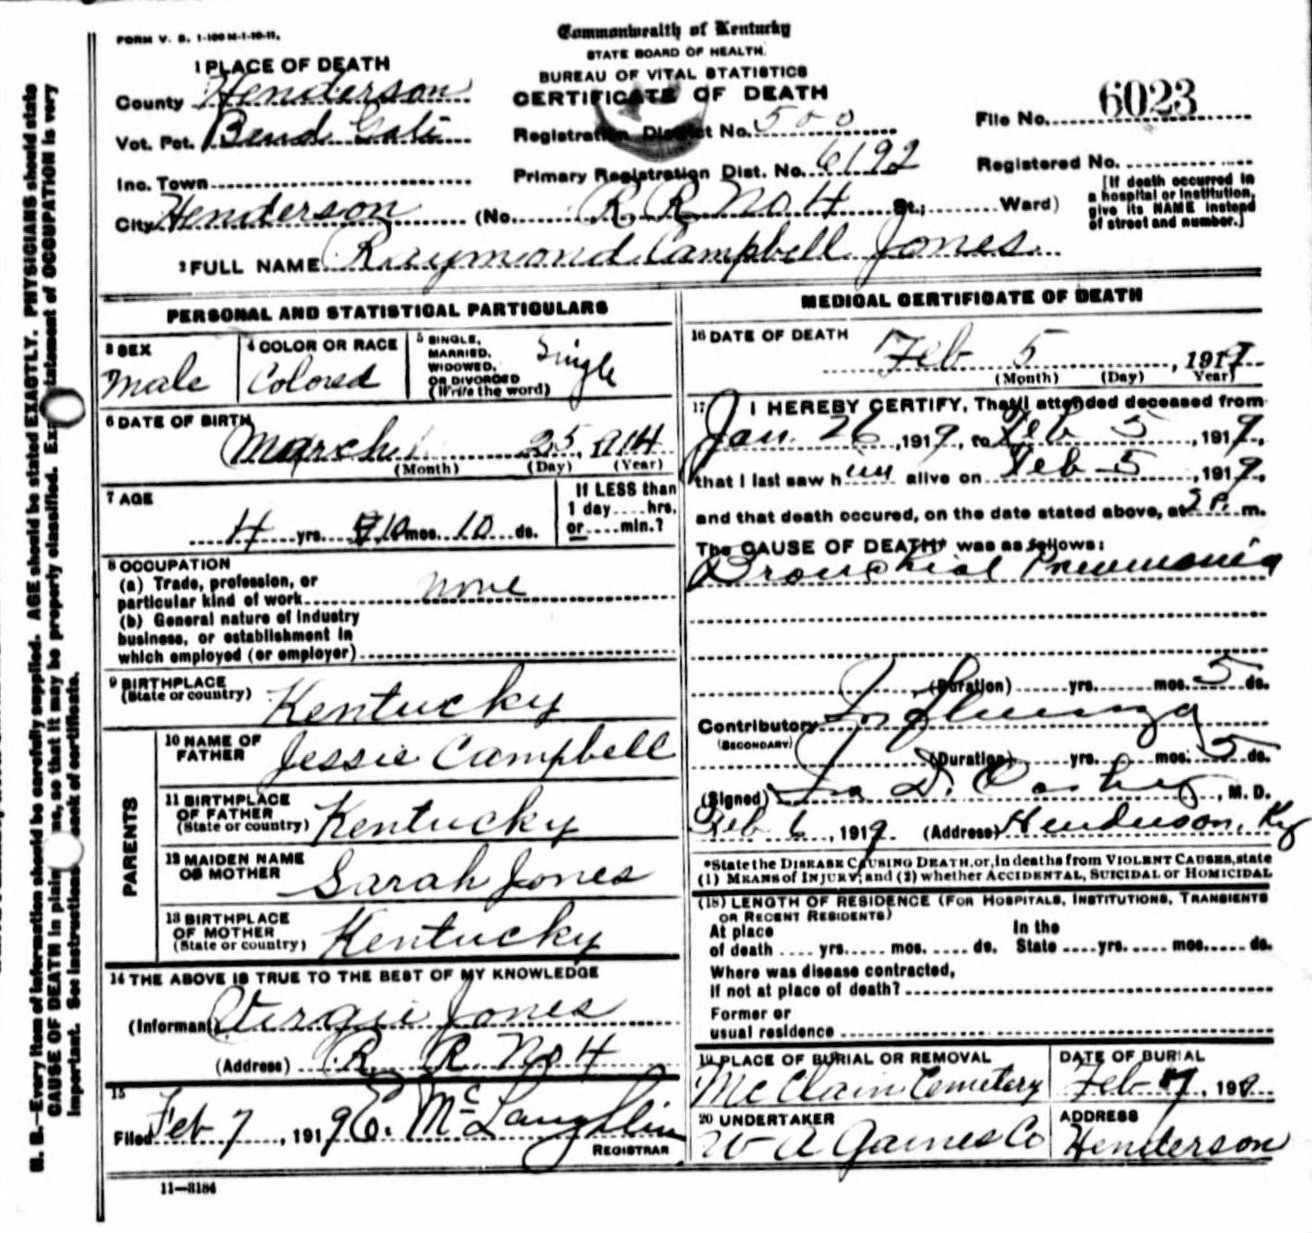 FORM V. S. 1-100 M-1-10-11.
Commonwealth of Kentucky
STATE BOARD OF HEALTH.
BUREAU OF VITAL STATISTICS
CERTIFICATE OF DEATH
1 PLACE OF DEATH
County Henderson
Vot. Pct. Bend Gate
Inc. Town
City Henderson (No. R. R. No. 4 St.; Ward)
Registration District No. 500
Primary Registration Dist. No. 6192
File No. 6023
Registered No.
[If death occurred in
a hospital or institution,
give its NAME instead
of street and number.]
2 FULL NAME Raymond Campbell Jones
PERSONAL AND STATISTICAL PARTICULARS
3 SEX
Male
4 COLOR OR RACE
Colored
5 SINGLE,
MARRIED,
WIDOWED,
OR DIVORCED
(Write the word)
Single
6 DATE OF BIRTH
March 25, 1914
(Month) (Day) (Year)
7 AGE
4 yrs. 10 mos. 10 ds.
If LESS than
1 day....hrs.
or....min.?
8 OCCUPATION
(a) Trade, profession, or
particular kind of work none
(b) General nature of industry
business, or establishment in
which employed (or employer)
9 BIRTHPLACE
(State or country) Kentucky
PARENTS
10 NAME OF
FATHER Jessie Campbell
11 BIRTHPLACE
OF FATHER
(State or country) Kentucky
12 MAIDEN NAME
OF MOTHER Sarah Jones
13 BIRTHPLACE
OF MOTHER
(State or country) Kentucky
14 THE ABOVE IS TRUE TO THE BEST OF MY KNOWLEDGE
(Informant) Virgie Jones
(Address) R. R. No 4
15
Filed Feb 7, 1919 E. McLaughlin
REGISTRAR
11—3184
MEDICAL CERTIFICATE OF DEATH
16 DATE OF DEATH
Feb 5, 1919
(Month) (Day) Year)
17 I HEREBY CERTIFY, That I attended deceased from
Jan. 26, 1919, to Feb 5, 1919,
that I last saw him alive on Feb 5, 1919,
and that death occured, on the date stated above, at 2 P. m.
The CAUSE OF DEATH* was as follows:
Bronchial Pneumonia
(Duration) yrs. mos. 5 ds.
Contributory Influenza
(SECONDARY)
(Duration) yrs. mos. 5 ds.
(Signed) D. , M. D.
Feb 6, 1919 (Address) Henderson, Ky
*State the DISEASE CAUSING DEATH, or, in deaths from VIOLENT CAUSES, state
(1) MEANS of INJURY; and (2) whether ACCIDENTAL, SUICIDAL or HOMICIDAL
(18) LENGTH OF RESIDENCE (FOR HOSPITALS, INSTITUTIONS, TRANSIENTS
OR RECENT RESIDENTS)
At place In the
of death .... yrs. .... mos. .... ds. State .... yrs. .... mos. .... ds.
Where was disease contracted,
If not at place of death?
Former or
usual residence
19 PLACE OF BURIAL OR REMOVAL
McClain Cemetery
DATE OF BURIAL
Feb 7, 1919
20 UNDERTAKER
W A Gaines Co
ADDRESS
Henderson
N. B.—Every item of information should be carefully supplied. AGE should be stated EXACTLY. PHYSICIANS should state
CAUSE OF DEATH in plain so that it may be properly classified. Exact statement of OCCUPATION is very
important. See instructions back of certificate.